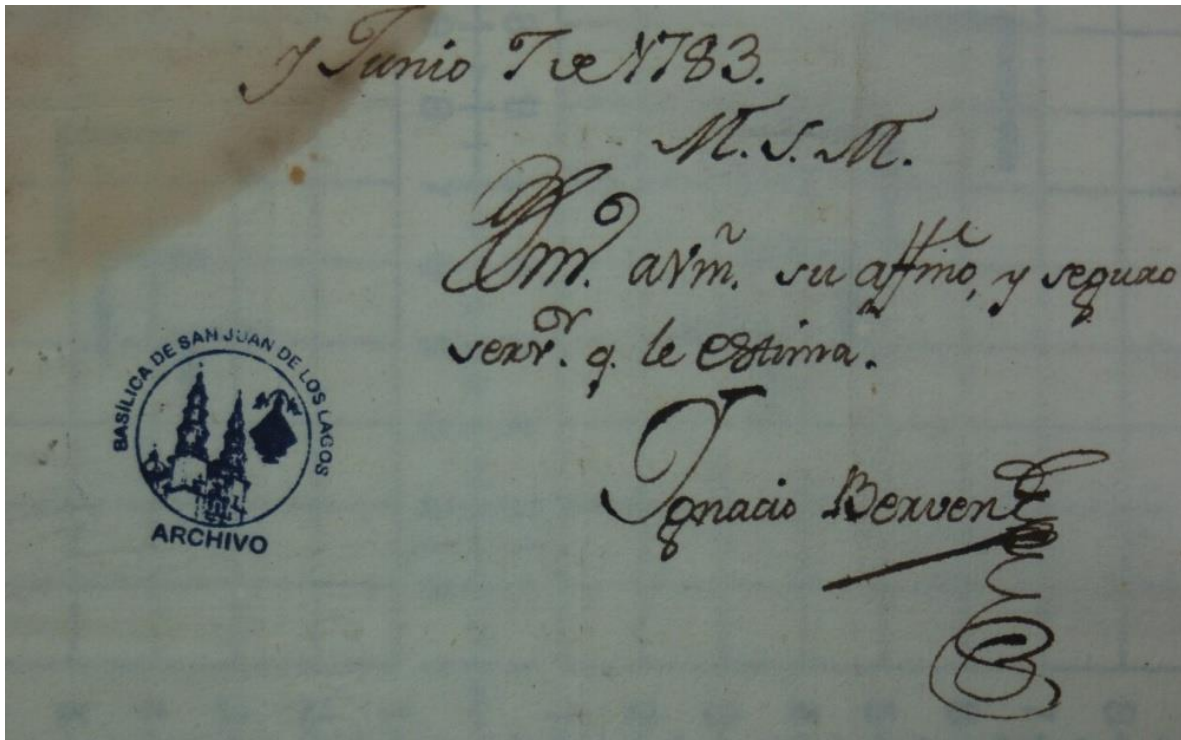 y Junio 7 de 1783.
M. S. M.
Bm̃. a Vm̃. su affmõ, y seguro
servr. q. le estima.
Ignacio Bervent
BASÍLICA DE SAN JUAN DE LOS LAGOS
ARCHIVO